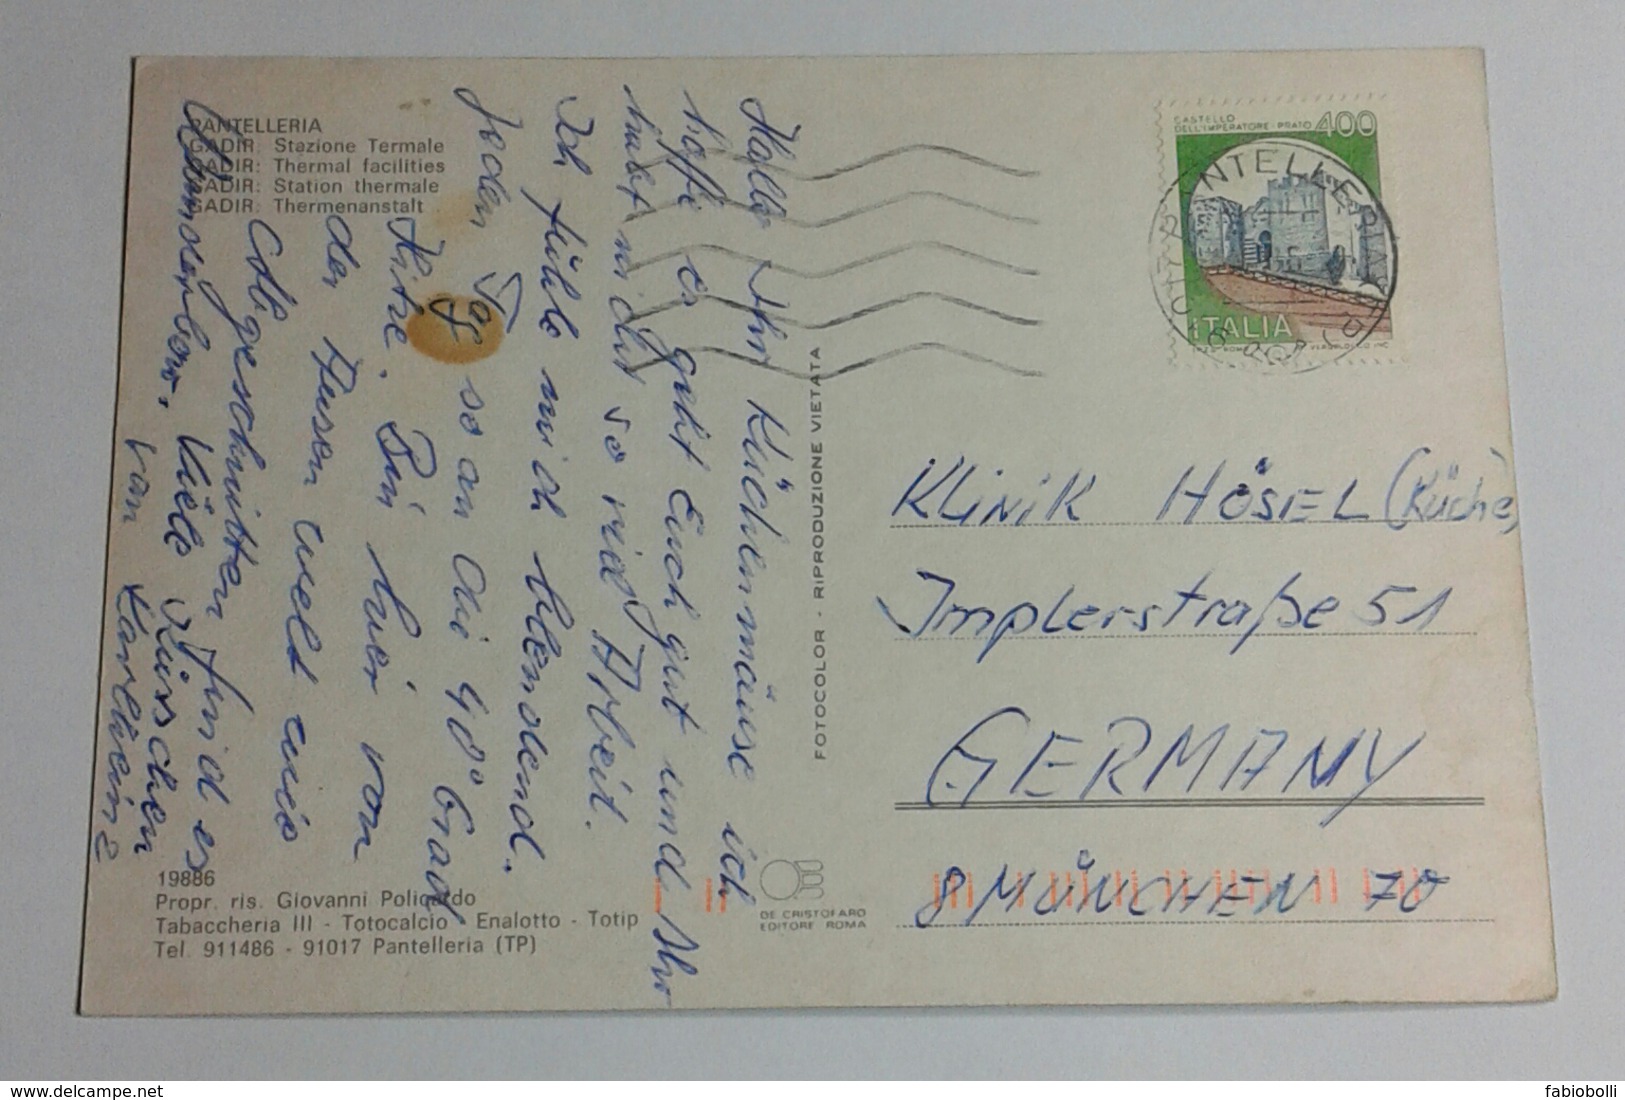 PANTELLERIA
GADIR: Stazione Termale
GADIR: Thermal facilities
GADIR: Station thermale
GADIR: Thermenanstalt
Hallo Ihr Küchenmäuse ich
hoffe es geht Euch gut und Ihr
habt nicht so viel Arbeit.
Ich fühle mich blendend.
Jeden Tag so an die 40° Grad
Hitze. Bin hier von
der Ausen welt wie
abgeschnitten find es
wunderbar. Viele Küsschen
von Karlheinz
19886
Propr. ris. Giovanni Policardo
Tabaccheria III - Totocalcio - Enalotto - Totip
Tel. 911486 - 91017 Pantelleria (TP)
FOTOCOLOR - RIPRODUZIONE VIETATA
DE CRISTOFARO
EDITORE ROMA
CASTELLO
DELL'IMPERATORE - PRATO 400
ITALIA
PANTELLERIA
KLINIK HÖSEL (Küche)
Implerstraße 51
GERMANY
8 MÜNCHEN 70
https://www.delcampe.net
fabiobolli